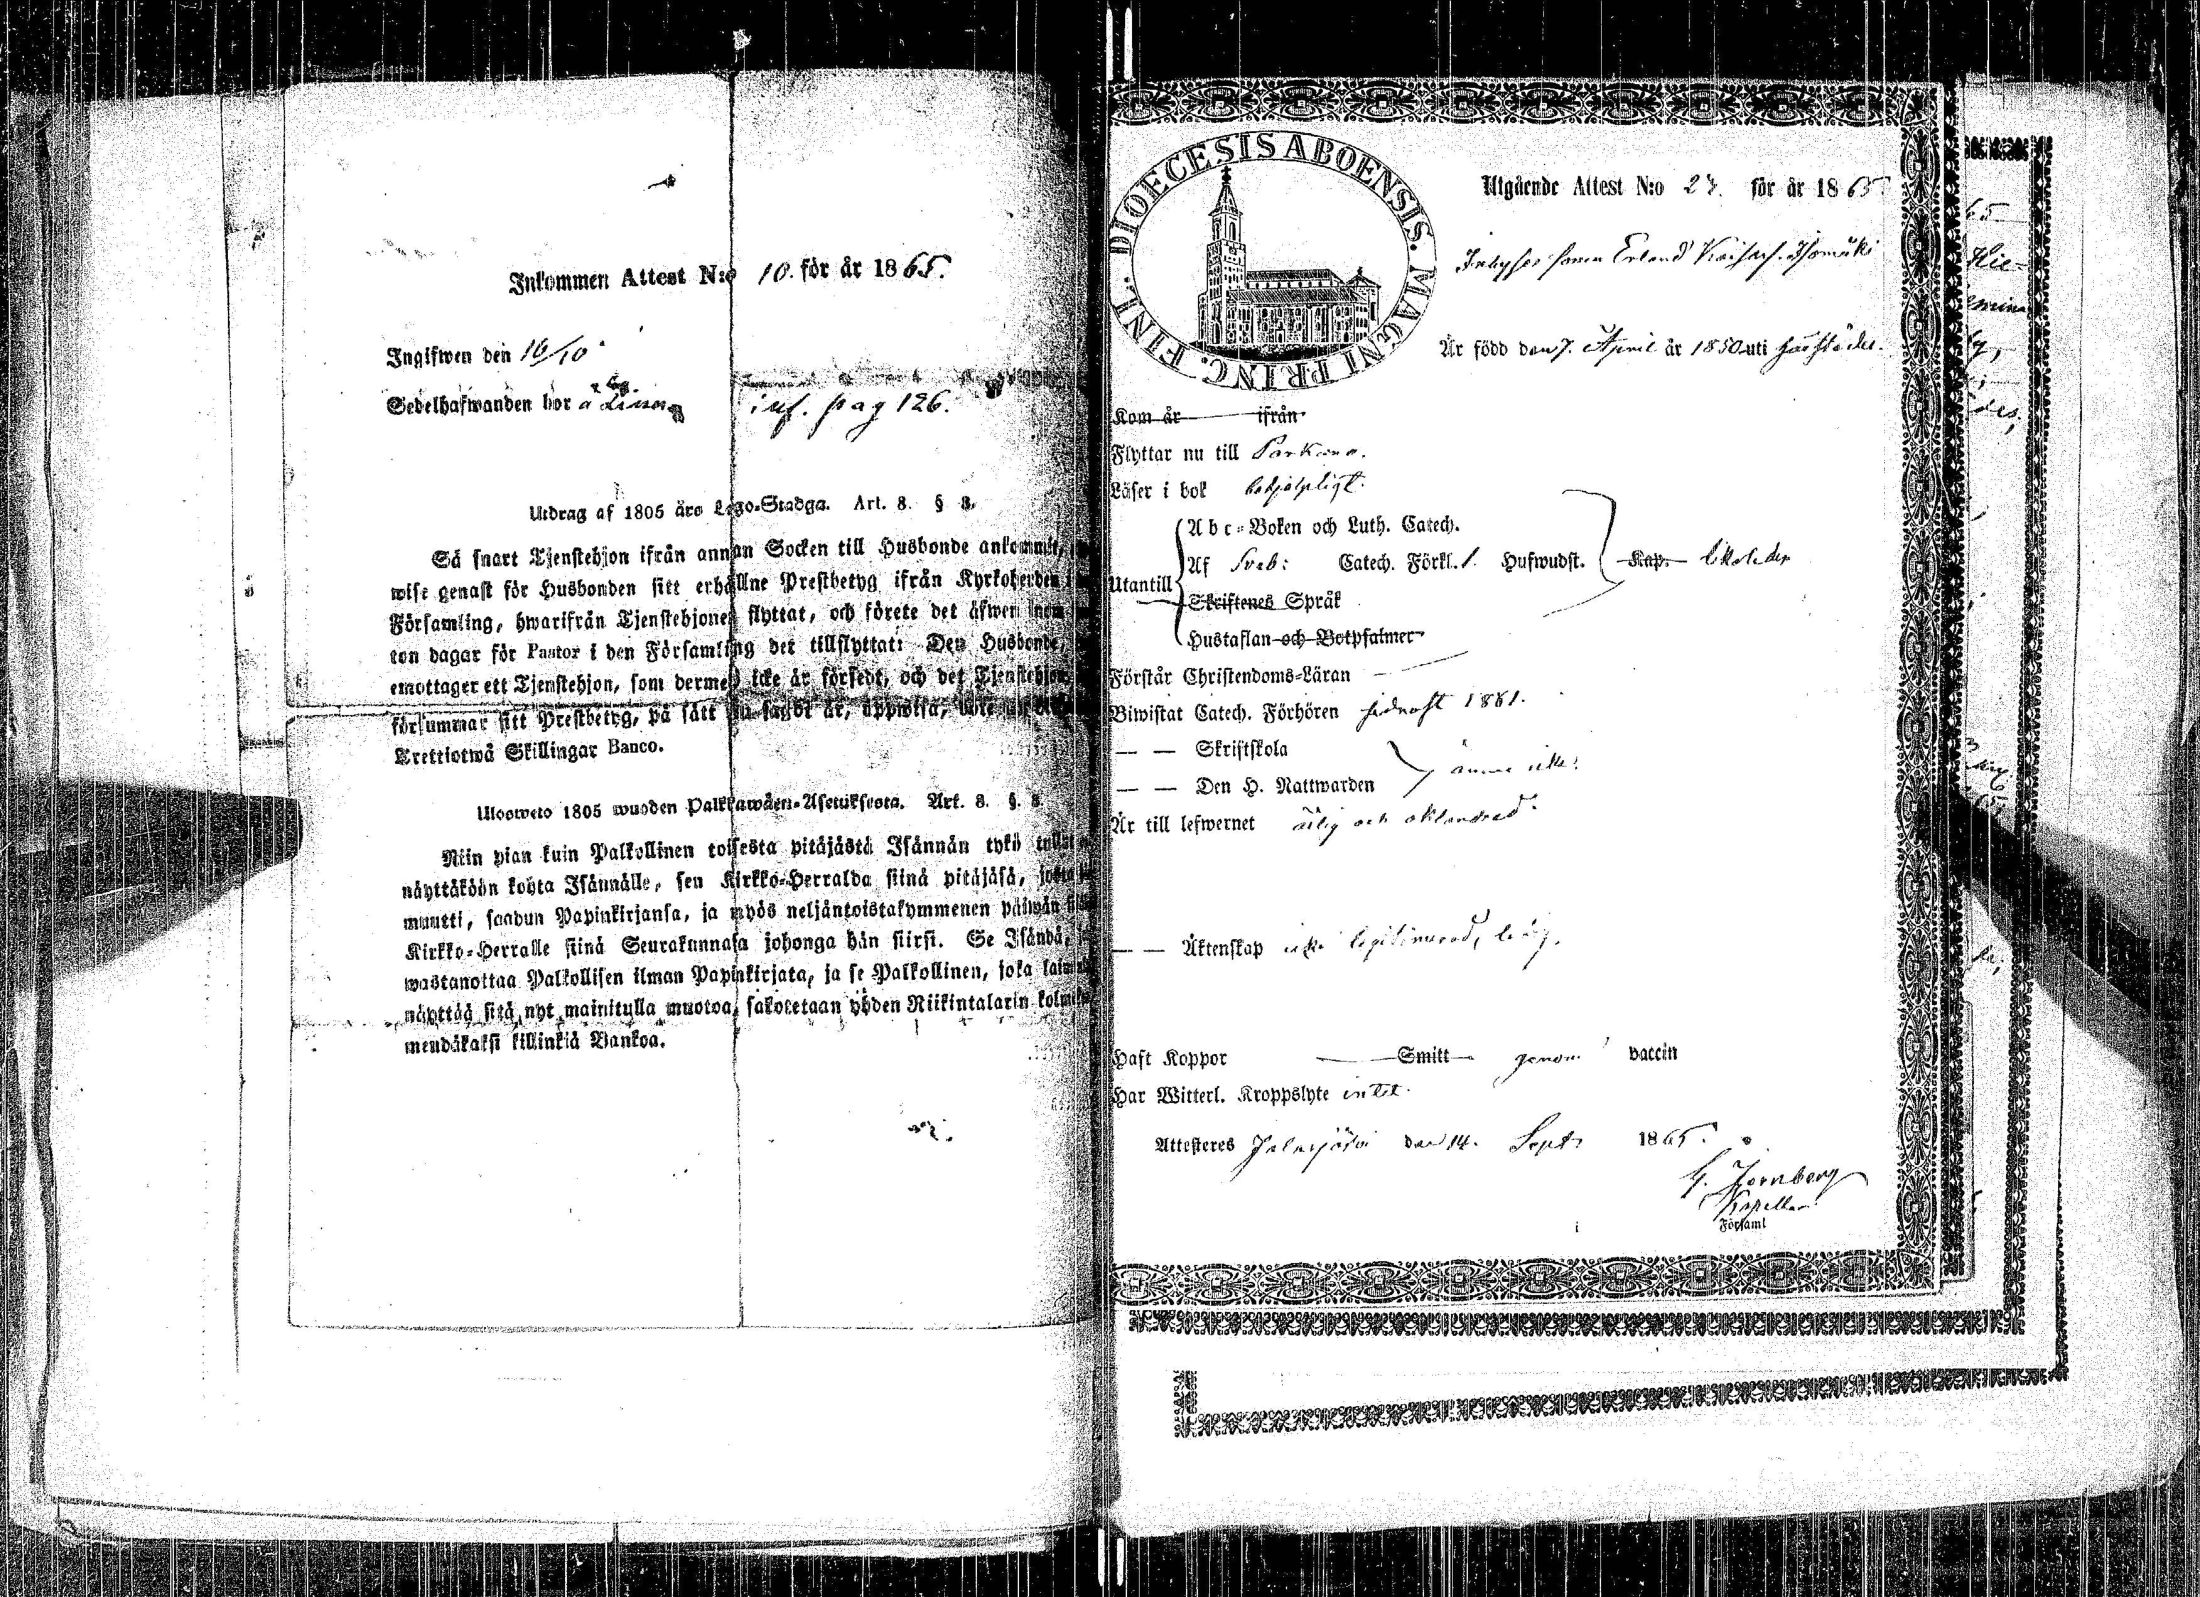 Inkommen Attest N:o 10. för år 1865.
Ingifwen den 16/10
Sedelhafwanden bor å
inf. pag 126.
Utdrag af 1805 års Lego-Stadga. Art. 8. § 8.
Så snart Tjenstehjon ifrån annan Socken till Husbonde ankommit,
wise genast för Husbonden sitt erhållne Prestbetyg ifrån Kyrkoherden
Församling, hwarifrån Tjenstehjonet flyttat, och förete det äfwen inom
ton dagar för Pastor i den Församling det tillflyttat: Den Husbonde,
emottager ett Tjenstehjon, som dermed icke är försedt, och det Tjenstehjon
försummar sitt Prestbetyg, på sätt nu sagdt är, uppwisa,
Trettiotwå Skillingar Banco.
Ulosweto 1805 wuoden Palkkawäen-Asetuksesta. Art. 8. §. 8.
Niin pian kuin Palkollinen toisesta pitäjästä Isännän tykö tullut
näyttäköön kohta Isännälle, sen Kirkko-Herralda siinä pitäjäsä, josta
muutti, saadun Papinkirjansa, ja myös neljäntoistakymmenen päiwän
Kirkko-Herralle siinä Seurakunnasa johonga hän siirsi. Se Isändä,
wastanottaa Palkollisen ilman Papinkirjata, ja se Palkollinen, joka
näyttää sitä nyt mainitulla muotoa, sakotetaan yhden Riikintalarin
mendäkaksi killinkiä Bankoa.
DIOECESIS ABOENSIS. MAGNI PRINC. FINL.
Utgående Attest N:o 27. för år 1865
Inhyses sonen Erland Isomäki
Är född den 7. April år 1850 uti härstädes.
Kom år ifrån
Flyttar nu till Parkano.
Läser i bok behjelpligt.
Abc-Boken och Luth. Catech.
Utantill Af Sveb: Catech. Förkl. 1. Hufwudst. Kap.
Skriftenes Språk
Hustaflan och Botpsalmer
Förstår Christendoms-Läran
Biwistat Catech. Förhören sednast 1861.
— — Skriftskola
— — Den H. Nattwarden ännu icke.
Är till lefwernet ärlig och oklandrad
— — Äktenskap icke legitimerad, ledig.
Haft Koppor Smitt genom vaccin
Har Witterl. Kroppslyte intet.
Attesteres Jalasjärvi den 14. Sept. 1865.
Kapellan
Församl